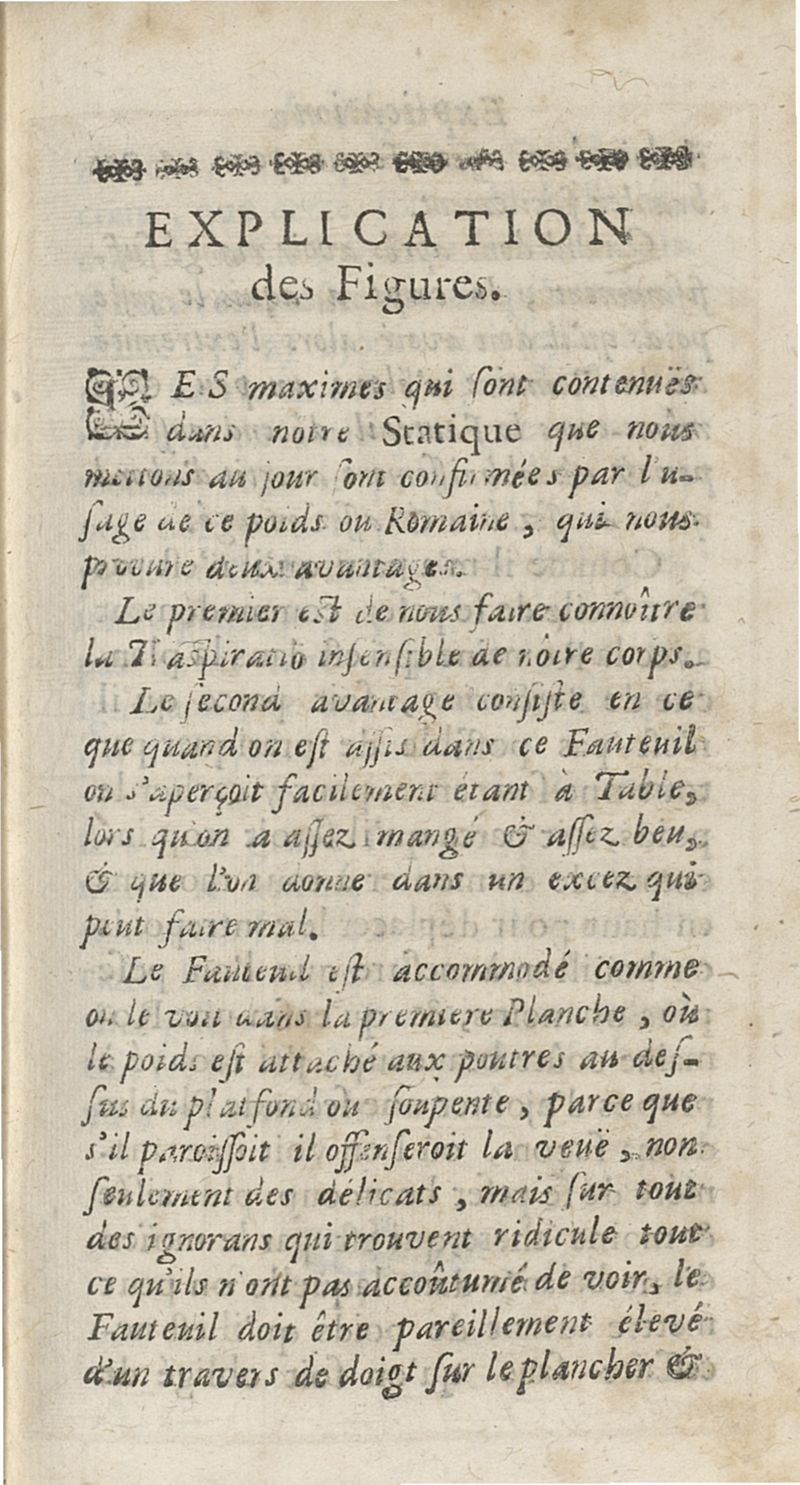 EXPLICATION
des Figures.
LES maximes qui ſont contenuës
dans notre Statique que nous
mettons au jour ſont confirmées par l'u-
ſage de ce poids ou Romaine, qui nous
procure deux avantages.
Le premier est de nous faire connoître
la Traſpiratiō inſenſible de nôtre corps.
Le ſecond avantage conſiſte en ce
que quand on eſt aſſis dans ce Fauteuil
on s'aperçoit facilement étant à Table,
lors qu'on a aſſez mangé & aſſez beu,
& que l'on donne dans un excez qui
peut faire mal.
Le Fauteuil eſt accommodé comme
on le voit dans la premiere Planche, où
le poids eſt attaché aux poutres au deſ-
ſus du platfond ou ſoupente, parce que
s'il paroiſſoit il offenſeroit la veuë, non
ſeulement des délicats, mais ſur tout
des ignorans qui trouvent ridicule tout
ce qu'ils n'ont pas accoûtumé de voir, le
Fauteuil doit être pareillement élevé
d'un travers de doigt ſur le plancher &